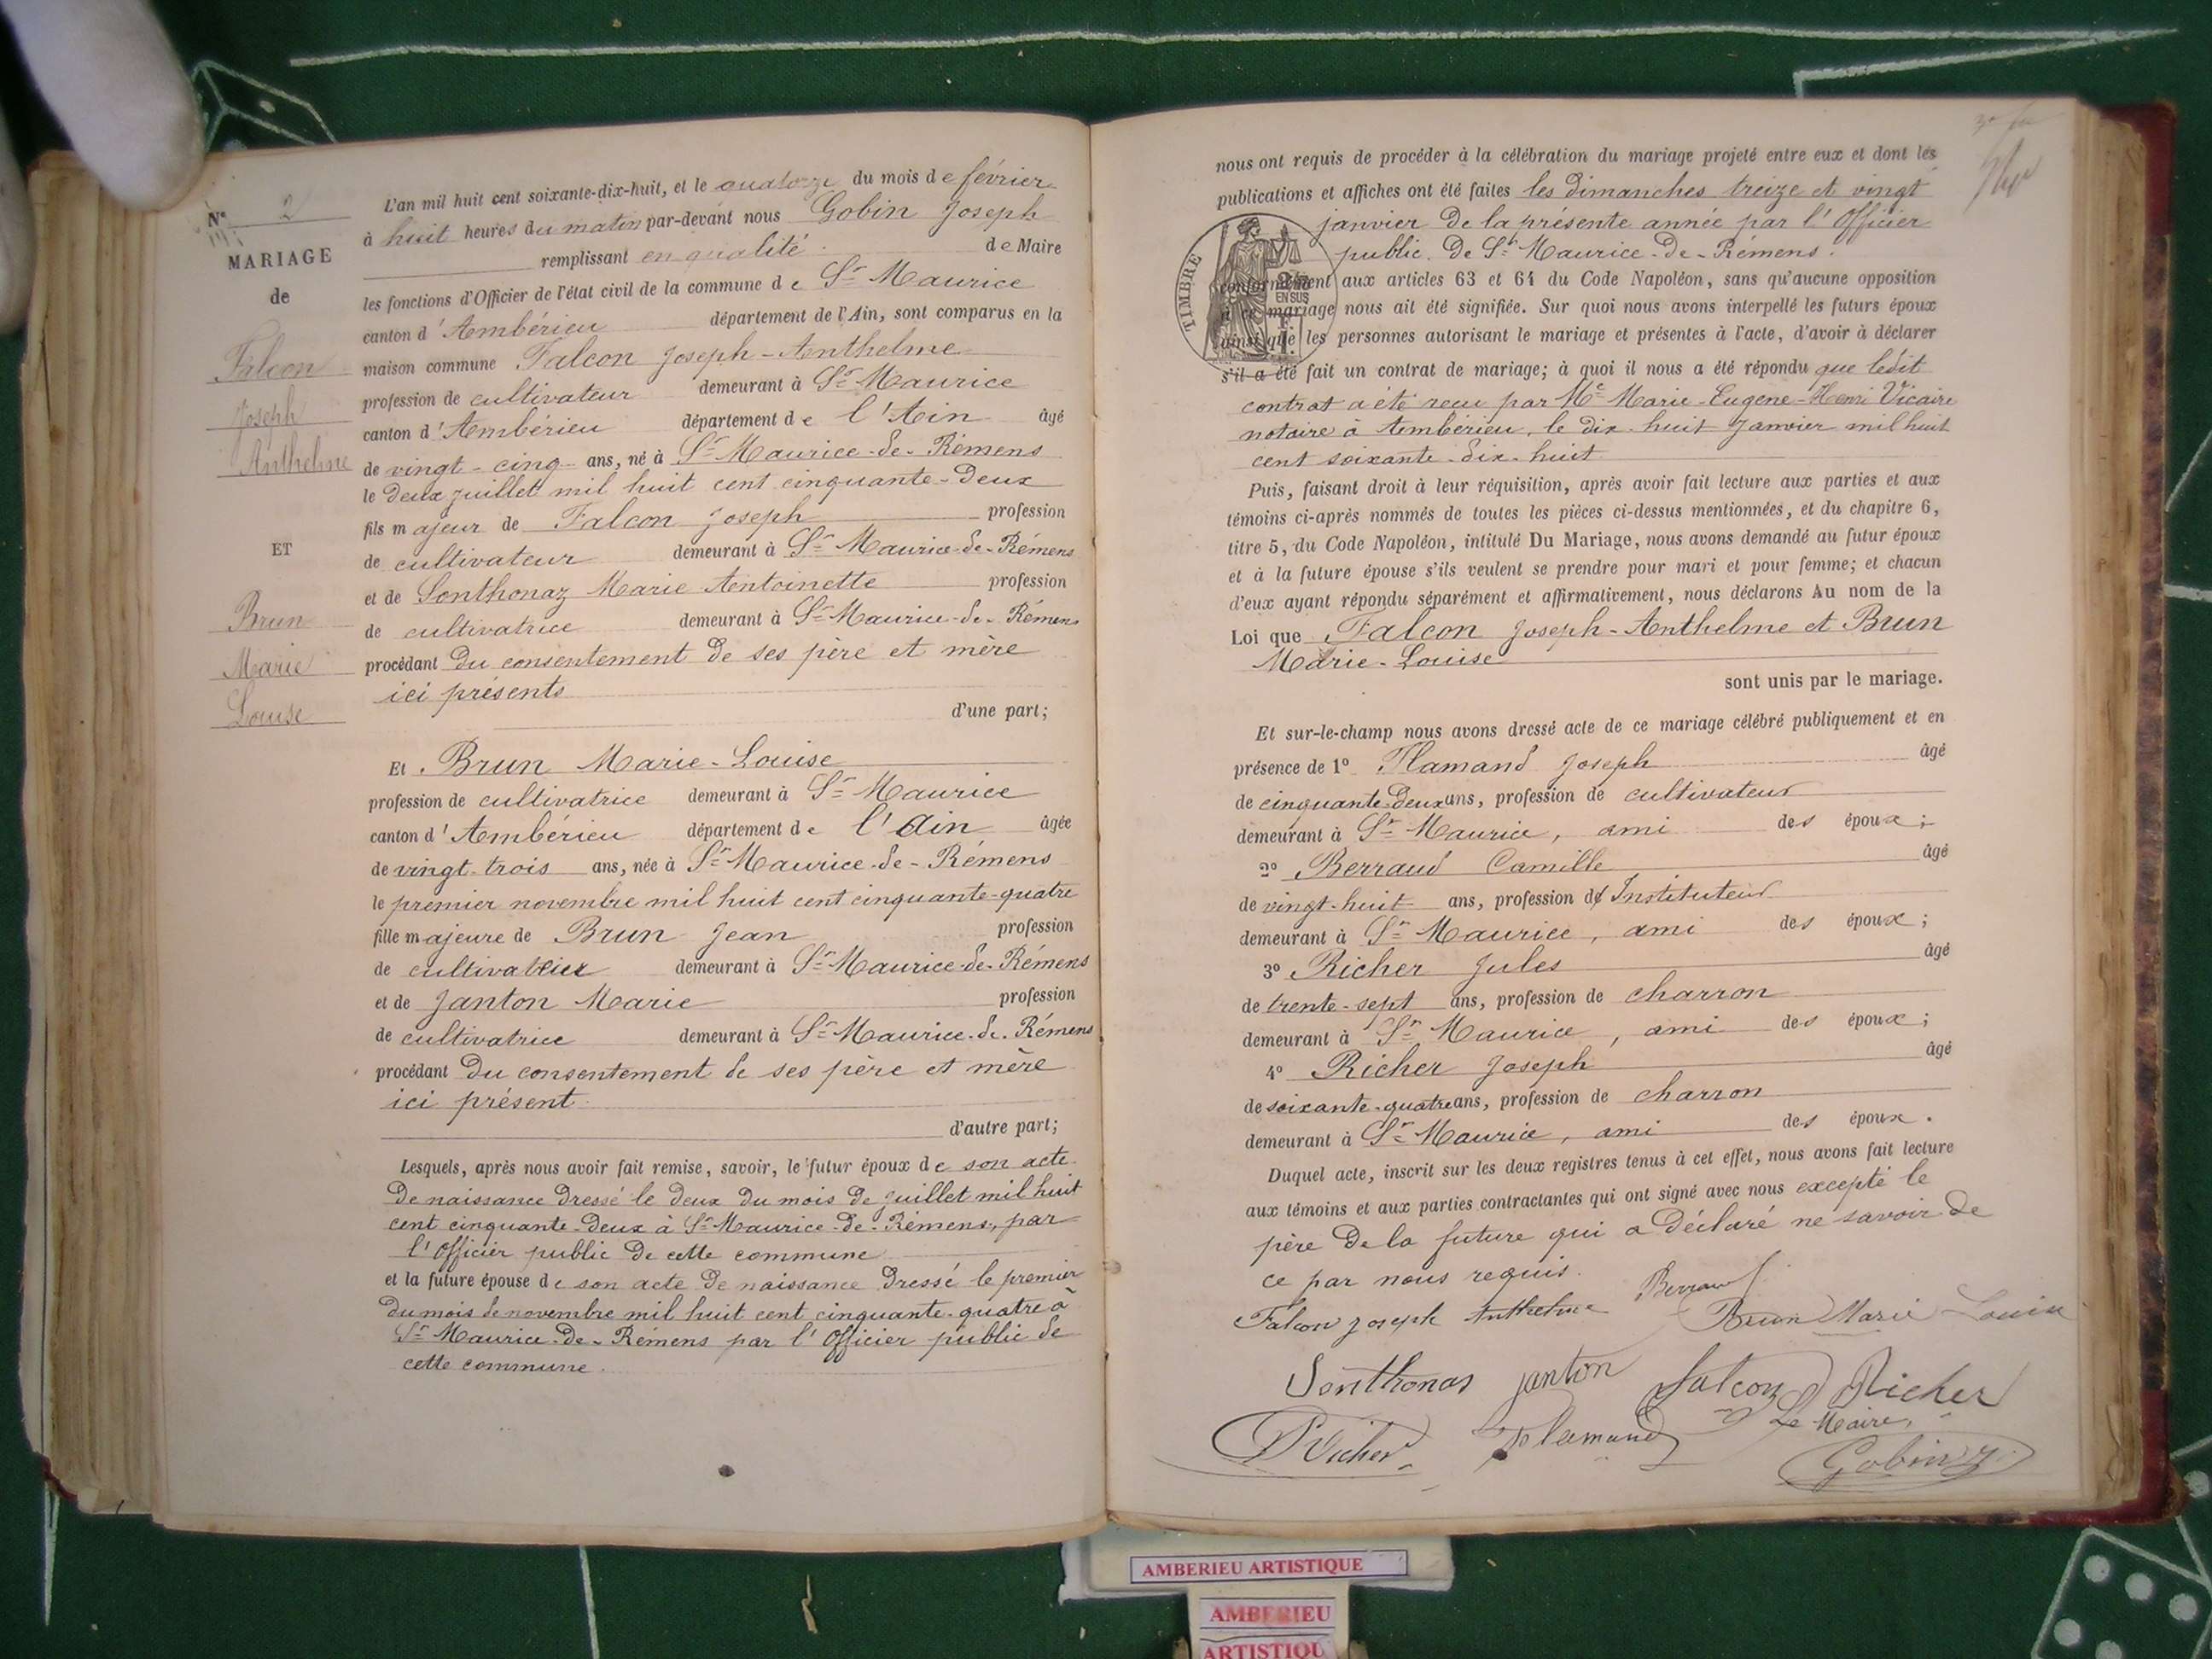 N° 2
MARIAGE
de
Falcon
Joseph
Anthelme
ET
Brun
Marie
Louise
L'an mil huit cent soixante-dix-huit, et le quatorze du mois de février
à huit heures du matin par-devant nous Gobin Joseph
remplissant en qualité de Maire
les fonctions d'Officier de l'état civil de la commune de St Maurice
canton d'Ambérieu département de l'Ain, sont comparus en la
maison commune Falcon Joseph-Anthelme
profession de cultivateur demeurant à St Maurice
canton d'Ambérieu département de l'Ain âgé
de vingt-cinq ans, né à St Maurice-de-Rémens
le deux juillet mil huit cent cinquante-deux
fils majeur de Falcon Joseph profession
de cultivateur demeurant à St Maurice-de-Rémens
et de Sonthonaz Marie Antoinette profession
de cultivatrice demeurant à St Maurice-de-Rémens
procédant du consentement de ses père et mère
ici présents
d'une part;
Et Brun Marie-Louise
profession de cultivatrice demeurant à St Maurice
canton d'Ambérieu département de l'Ain âgée
de vingt-trois ans, née à St Maurice-de-Rémens
le premier novembre mil huit cent cinquante-quatre
fille majeure de Brun Jean profession
de demeurant à St Maurice-de-Rémens
et de Janton Marie profession
de cultivatrice demeurant à St Maurice-de-Rémens
procédant du consentement de ses père et mère
ici présent
d'autre part;
Lesquels, après nous avoir fait remise, savoir, le futur époux de son acte
de naissance dressé le deux du mois de juillet mil huit
cent cinquante-deux à St Maurice-de-Rémens, par
l'Officier public de cette commune
et la future épouse de son acte de naissance dressé le premier
du mois de novembre mil huit cent cinquante-quatre à
St Maurice-de-Rémens par l'Officier public de
cette commune.
nous ont requis de procéder à la célébration du mariage projeté entre eux et dont les
publications et affiches ont été faites les dimanches treize et vingt
janvier de la présente année par l'Officier
public de St Maurice-de-Rémens.
TIMBRE
EN SUS
conformément aux articles 63 et 64 du Code Napoléon, sans qu'aucune opposition
à ce mariage nous ait été signifiée. Sur quoi nous avons interpellé les futurs époux
ainsi que les personnes autorisant le mariage et présentes à l'acte, d'avoir à déclarer
s'il a été fait un contrat de mariage; à quoi il nous a été répondu que ledit
contrat a été reçu par Me Marie-Eugène-Henri Vicaire
notaire à Ambérieu, le dix-huit Janvier mil huit
cent soixante-dix-huit
Puis, faisant droit à leur réquisition, après avoir fait lecture aux parties et aux
témoins ci-après nommés de toutes les pièces ci-dessus mentionnées, et du chapitre 6,
titre 5, du Code Napoléon, intitulé Du Mariage, nous avons demandé au futur époux
et à la future épouse s'ils veulent se prendre pour mari et pour femme; et chacun
d'eux ayant répondu séparément et affirmativement, nous déclarons Au nom de la
Loi que Falcon Joseph-Anthelme et Brun
Marie-Louise
sont unis par le mariage.
Et sur-le-champ nous avons dressé acte de ce mariage célébré publiquement et en
présence de 1° Flamand Joseph âgé
de cinquante-deux ans, profession de cultivateur
demeurant à St Maurice, ami des époux;
2° Berraud Camille âgé
de vingt-huit ans, profession d'Instituteur
demeurant à St Maurice, ami des époux;
3° Richer Jules âgé
de trente-sept ans, profession de charron
demeurant à St Maurice, ami des époux;
4° Richer Joseph âgé
de soixante-quatre ans, profession de charron
demeurant à St Maurice, ami des époux.
Duquel acte, inscrit sur les deux registres tenus à cet effet, nous avons fait lecture
aux témoins et aux parties contractantes qui ont signé avec nous excepté le
père de la future qui a déclaré ne savoir de
ce par nous requis.
Berraud
Falcon Joseph Anthelme Brun Marie Louise
Sonthonas Janton Falcon Richer
Richer Flamand Le Maire,
Gobin
AMBERIEU ARTISTIQUE
AMBERIEU
ARTISTIQU